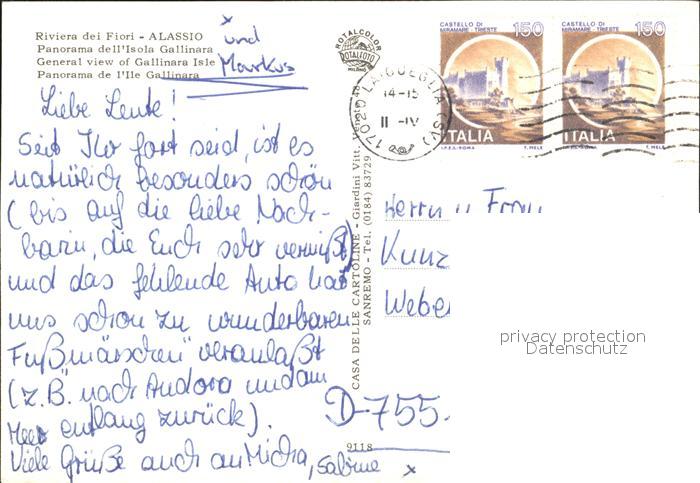 Riviera dei Fiori - ALASSIO
Panorama dell'Isola Gallinara
General view of Gallinara Isle
Panorama de l'Ile Gallinara
x
und
Markus
Liebe Leute!
Seit Ihr fort seid, ist es
natürlich besonders schön
(bis auf die liebe Nach-
barin, die Euch sehr vermißt)
und das fehlende Auto hat
uns schon zu wunderbaren
"Fußmärschen" veranlaßt
(z.B. nach Andora und am
Meer entlang zurück).
Viele Grüße auch an Micha, Sabine x
ROTALCOLOR
ROTALFOTO
MILANO
CASA DELLE CARTOLINE - Giardini Vitt. Veneto
SANREMO - Tel. (0184) 83729
9118
17020 LAIGUEGLIA (SV)
14-15
11-IV
CASTELLO DI
MIRAMARE - TRIESTE
150
ITALIA
I.P.Z.S.-ROMA
T. MELE
CASTELLO DI
MIRAMARE - TRIESTE
150
ITALIA
I.P.Z.S.-ROMA
T. MELE
Herrn u Frau
Kunz
Weber
D-755
privacy protection
Datenschutz